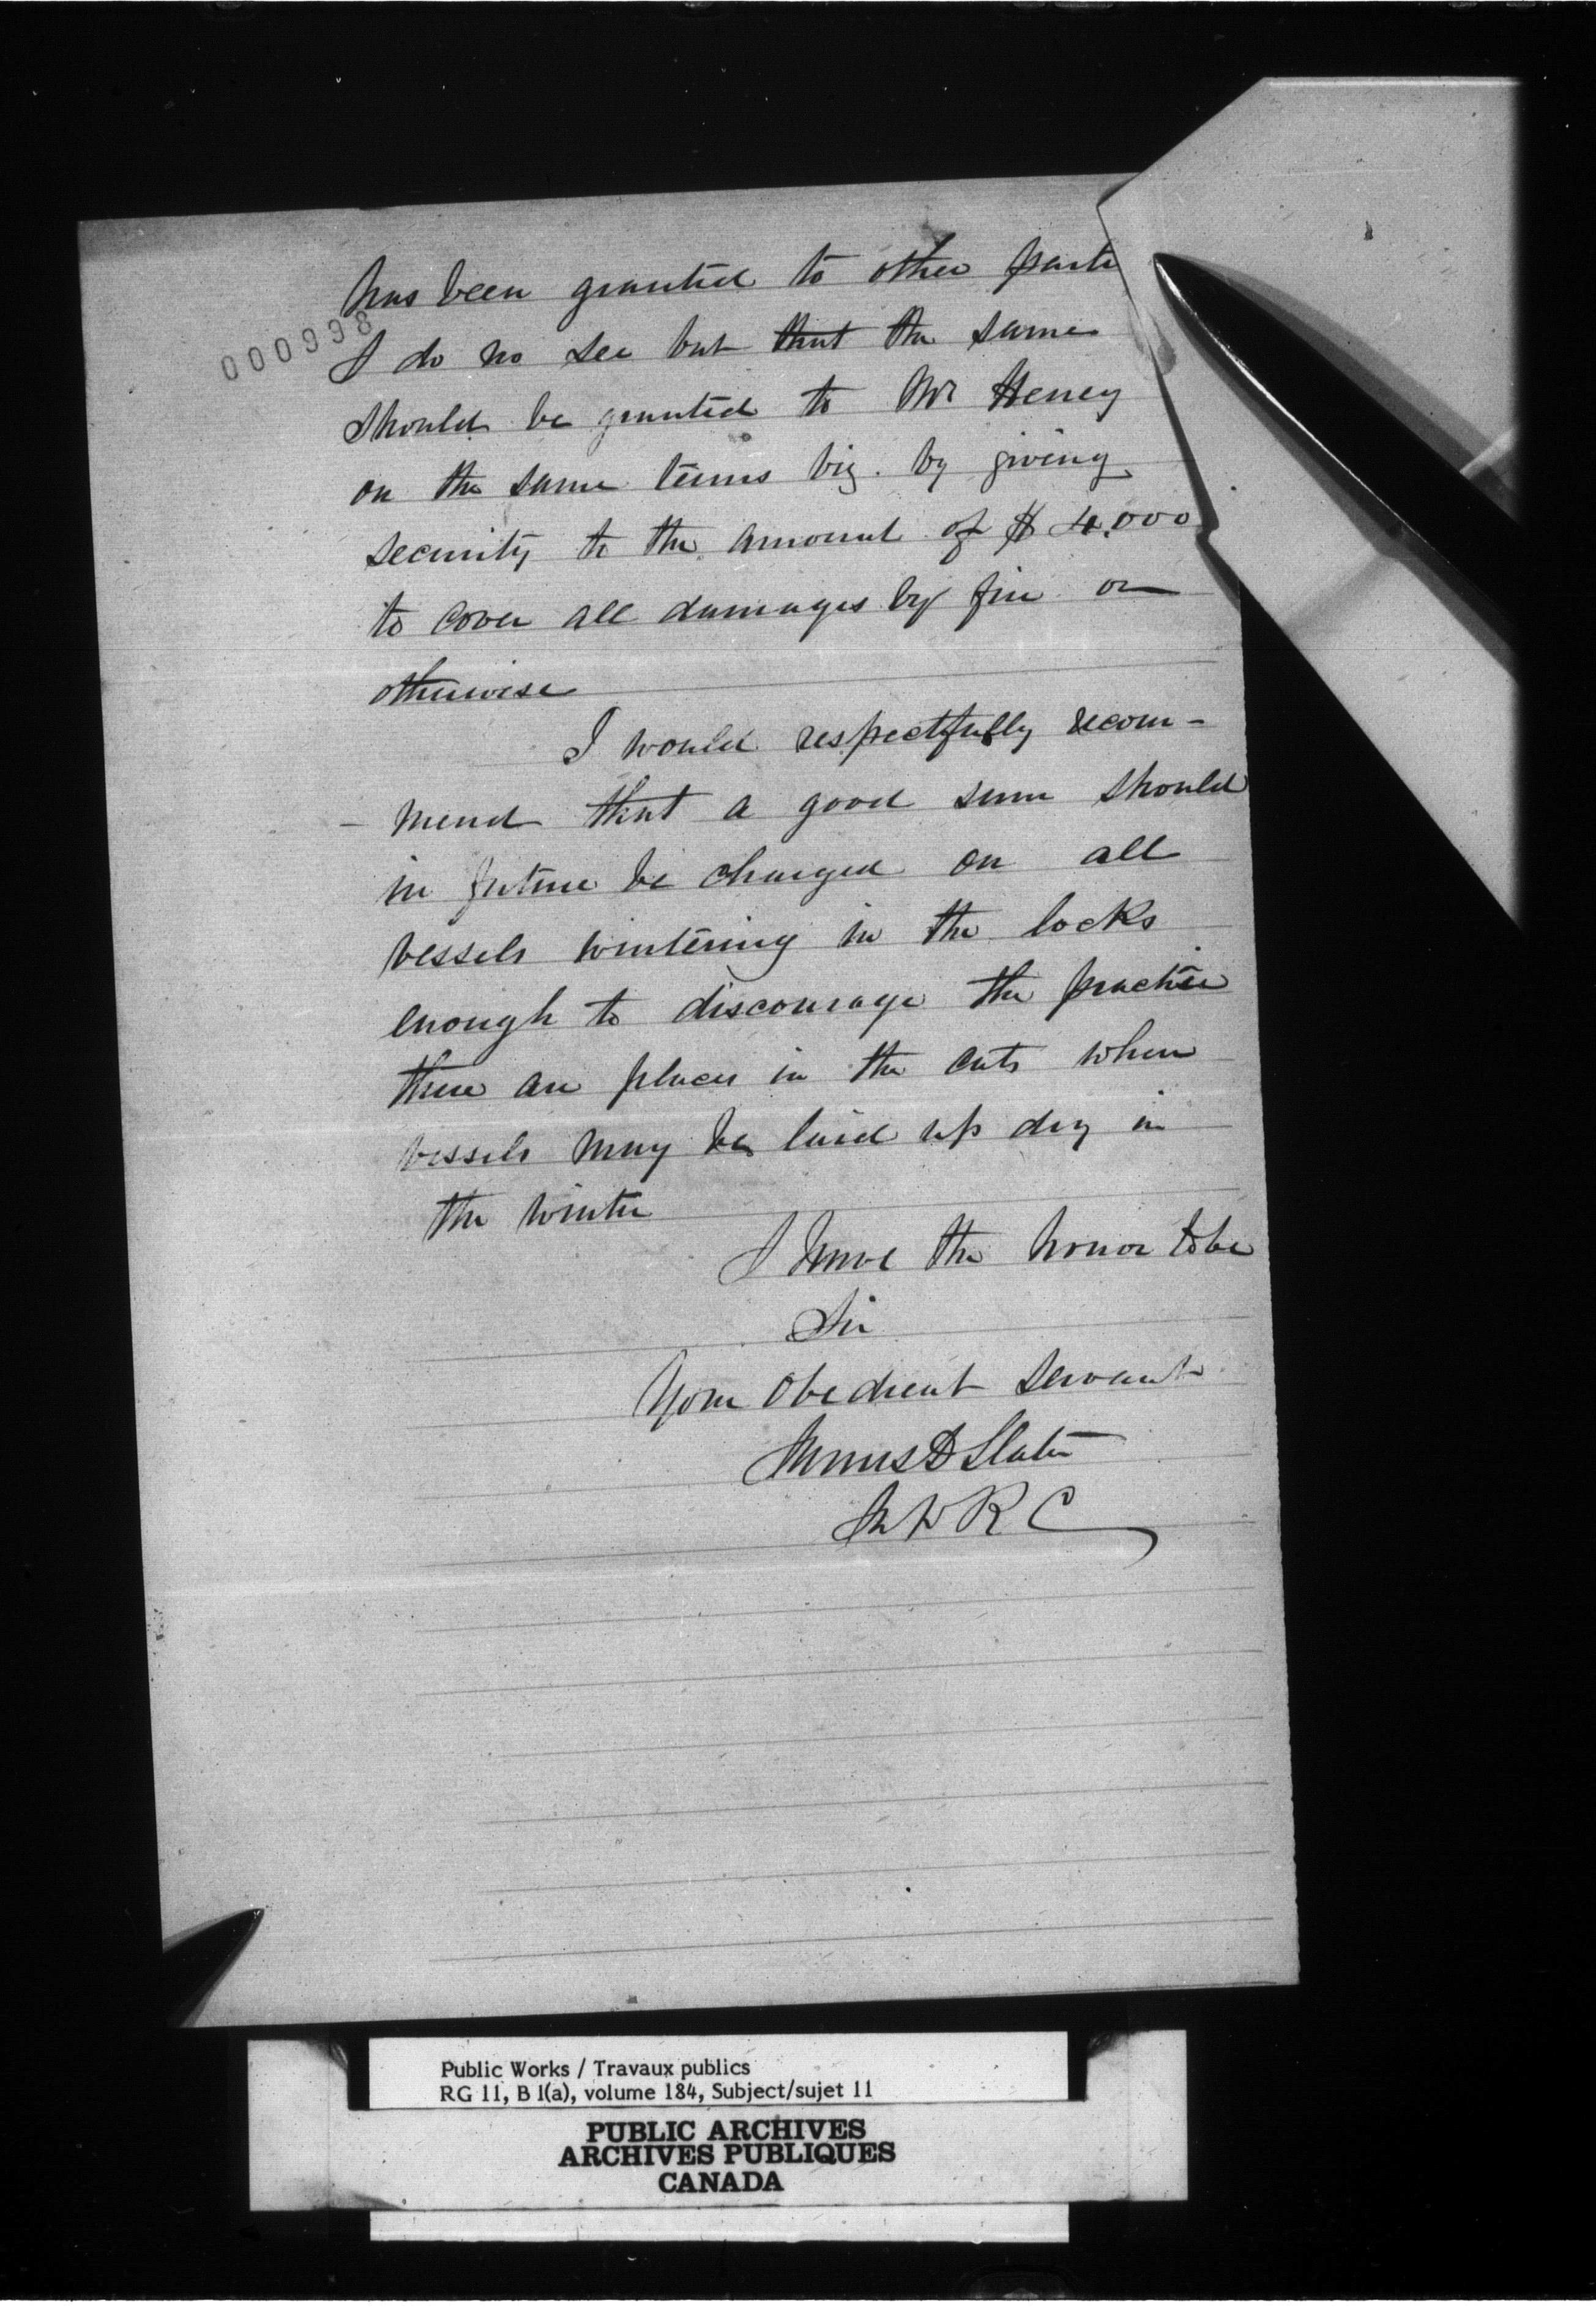 has been granted to other parti
000998
I do no see but that the same
should be granted to Mr Heney
on the same terms viz. by giving
security to the amount of $4,000
to cover all damages by fire or
otherwise
I would respectfully recom-
- mend that a good sum should
in future be charged on all
vessels wintering in the locks
enough to discourage the practice
there are places in the cuts where
vessels may be laid up dry in
the winter
I have the honor to be
Sir
Your Obedient Servant
James D Slater
R C
Public Works / Travaux publics
RG 11, B 1(a), volume 184, Subject/sujet 11
PUBLIC ARCHIVES
ARCHIVES PUBLIQUES
CANADA